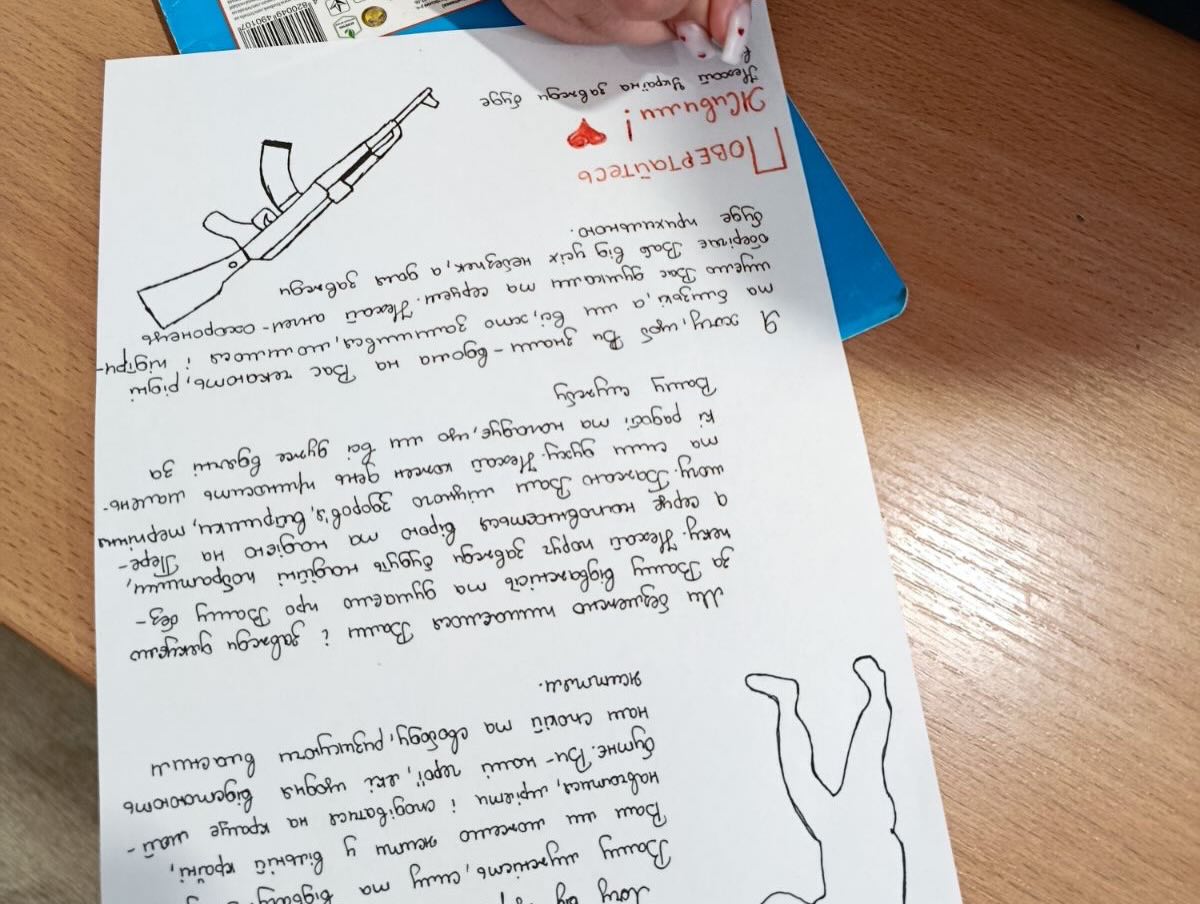 Хочу
Вашу мужність, силу та відвагу
Вам ми можемо жити у вільній країні,
навчатися, мріяти і сподіватися на краще май-
бутнє. Ви - наші герої, які щодня відстоюють
наш спокій та свободу, ризикуючи власним
життям.
Ми безмежно пишаємося Вами і завжди дякуємо
за Вашу відважність та думаємо про Вашу без-
пеку. Нехай поруч завжди будуть надійні побратими,
а серце наповнюється вірою та надією на Пере-
могу. Бажаю Вам міцного здоров'я, витримки, терпіння
та сили духу. Нехай кожен день приносить малень-
кі радості та нагадує, що ми всі дуже вдячні за
Вашу службу
Я хочу, щоб Ви знали - вдома на Вас чекають, рідні
та близькі, а ми всі, хто залишився, молимося і підтри-
муємо Вас думками та серцем. Нехай ангел - охоронець
оберігає Вас від усіх небезпек, а доля завжди
буде прихильною.
Повертайтесь
Живими!
Нехай Україна завжди буде
7820049490107